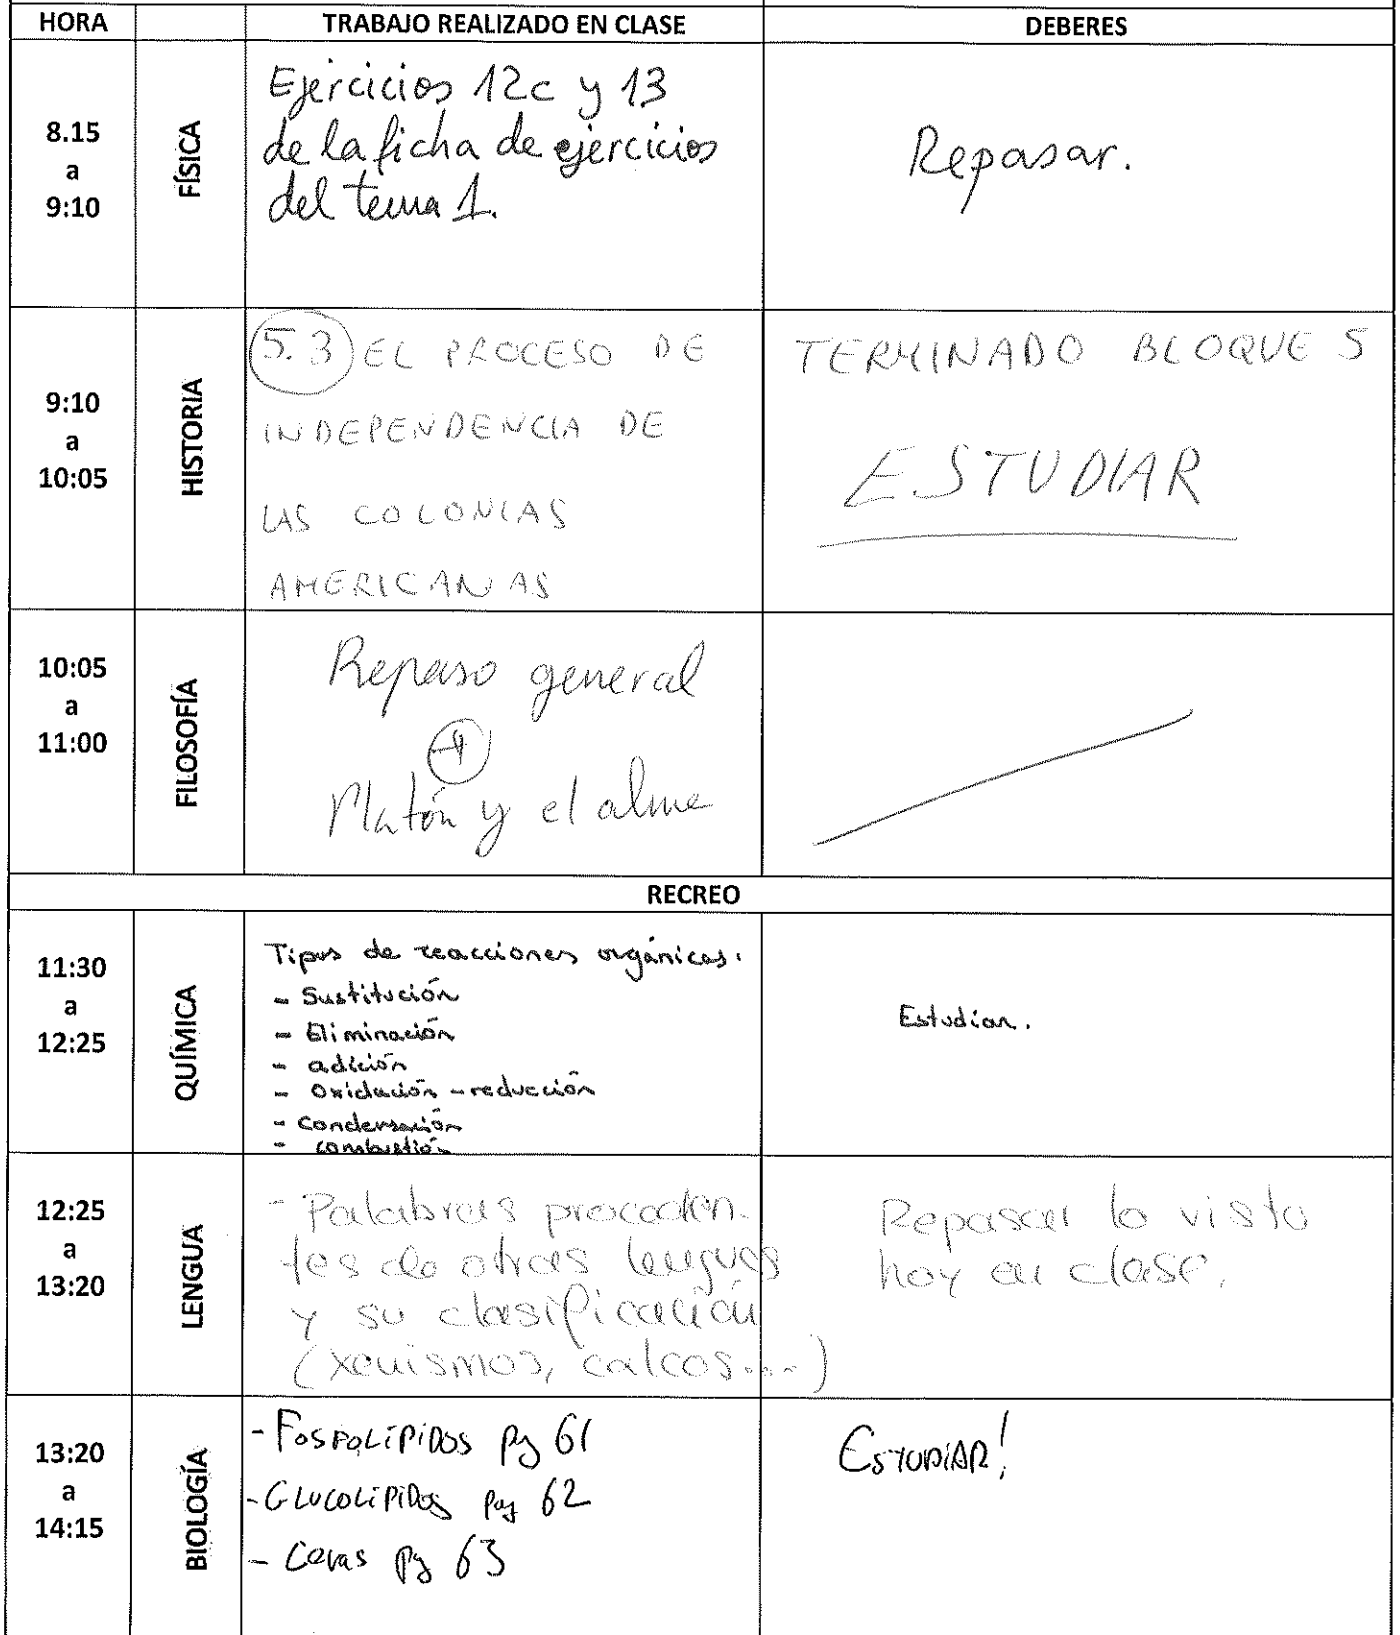 HORA TRABAJO REALIZADO EN CLASE DEBERES
8.15
a
9:10
FÍSICA
Ejercicios 12c y 13
de la ficha de ejercicios
del tema 1.
Repasar.
9:10
a
10:05
HISTORIA
5.3 EL PROCESO DE
INDEPENDENCIA DE
LAS COLONIAS
AMERICANAS
TERMINADO BLOQUE 5
ESTUDIAR
10:05
a
11:00
FILOSOFÍA
Repaso general
Platón y el alma
RECREO
11:30
a
12:25
QUÍMICA
Tipos de reacciones orgánicas.
- Sustitución
- Eliminación
- adición
- Oxidación - reducción
- condensación
- combustión
Estudiar.
12:25
a
13:20
LENGUA
- Palabras proceden-
tes de otras lenguas
y su clasificación
(xenismos, calcos....)
Repasar lo visto
hoy en clase.
13:20
a
14:15
BIOLOGÍA
- FOSFOLÍPIDOS pg 61
- GLUCOLÍPIDOS pag 62
- Ceras pg 63
ESTUDIAR!